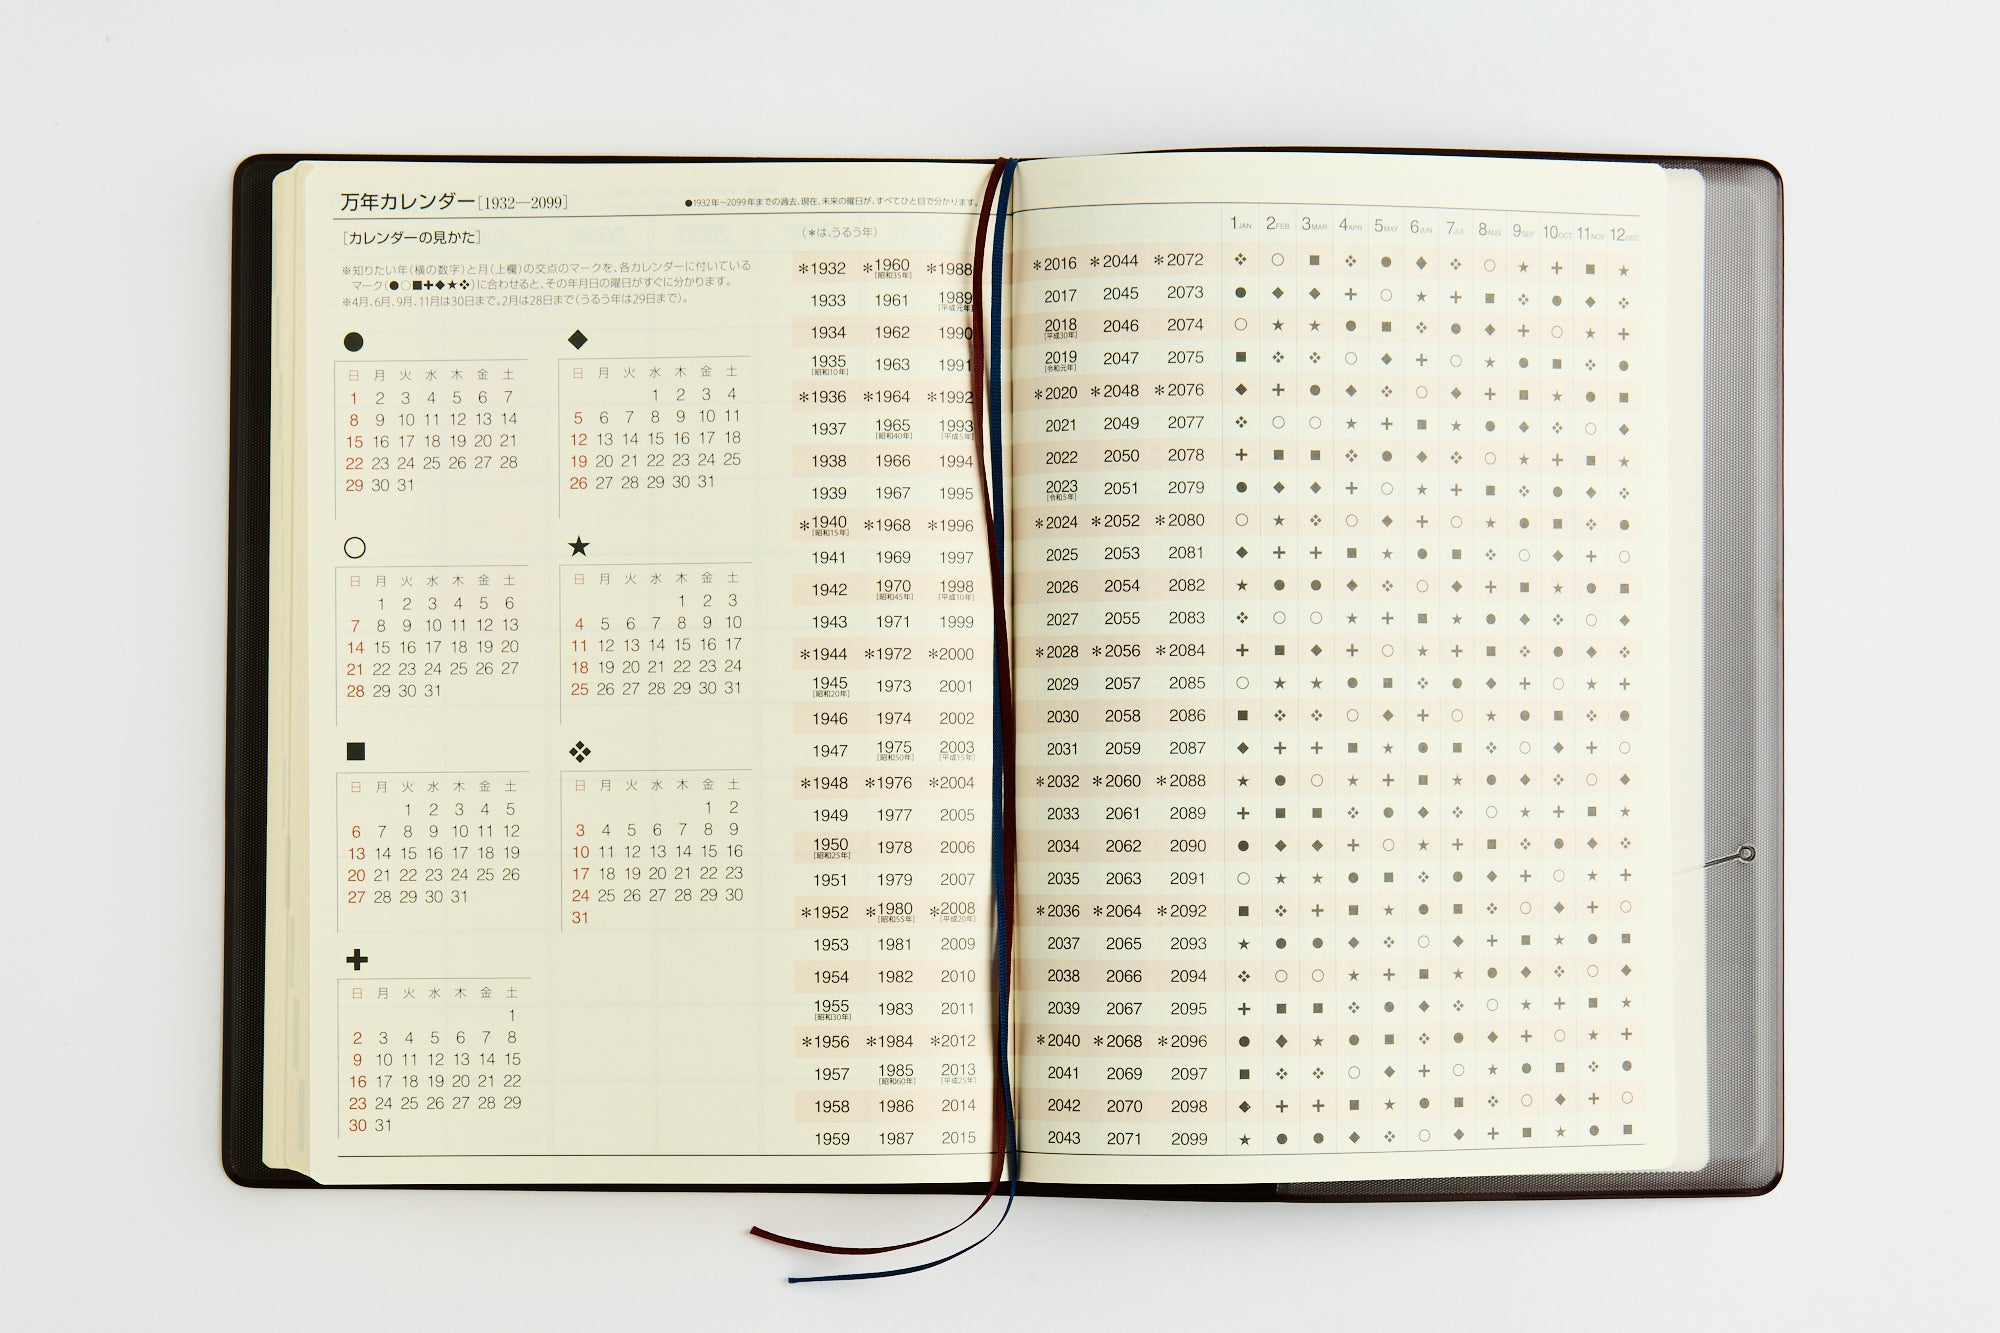 万年カレンダー[1932—2099]
●1932年〜2099年までの過去、現在、未来の曜日が、すべてひと目で分かります。
[カレンダーの見かた]
※知りたい年(横の数字)と月(上欄)の交点のマークを、各カレンダーに付いている
マーク(●○■✚◆★❖)に合わせると、その年月日の曜日がすぐに分かります。
※4月、6月、9月、11月は30日まで。2月は28日まで(うるう年は29日まで)。
●
日 月 火 水 木 金 土
1 2 3 4 5 6 7
8 9 10 11 12 13 14
15 16 17 18 19 20 21
22 23 24 25 26 27 28
29 30 31
○
日 月 火 水 木 金 土
1 2 3 4 5 6
7 8 9 10 11 12 13
14 15 16 17 18 19 20
21 22 23 24 25 26 27
28 29 30 31
■
日 月 火 水 木 金 土
1 2 3 4 5
6 7 8 9 10 11 12
13 14 15 16 17 18 19
20 21 22 23 24 25 26
27 28 29 30 31
✚
日 月 火 水 木 金 土
1
2 3 4 5 6 7 8
9 10 11 12 13 14 15
16 17 18 19 20 21 22
23 24 25 26 27 28 29
30 31
◆
日 月 火 水 木 金 土
1 2 3 4
5 6 7 8 9 10 11
12 13 14 15 16 17 18
19 20 21 22 23 24 25
26 27 28 29 30 31
★
日 月 火 水 木 金 土
1 2 3
4 5 6 7 8 9 10
11 12 13 14 15 16 17
18 19 20 21 22 23 24
25 26 27 28 29 30 31
❖
日 月 火 水 木 金 土
1 2
3 4 5 6 7 8 9
10 11 12 13 14 15 16
17 18 19 20 21 22 23
24 25 26 27 28 29 30
31
(＊は、うるう年)
＊1932 ＊1960 ＊1988
[昭和35年]
1933 1961 1989
[平成元年]
1934 1962 1990
1935 1963 1991
[昭和10年]
＊1936 ＊1964 ＊1992
1937 1965 1993
[昭和40年] [平成5年]
1938 1966 1994
1939 1967 1995
＊1940 ＊1968 ＊1996
[昭和15年]
1941 1969 1997
1942 1970 1998
[昭和45年] [平成10年]
1943 1971 1999
＊1944 ＊1972 ＊2000
1945 1973 2001
[昭和20年]
1946 1974 2002
1947 1975 2003
[昭和50年] [平成15年]
＊1948 ＊1976 ＊2004
1949 1977 2005
1950 1978 2006
[昭和25年]
1951 1979 2007
＊1952 ＊1980 ＊2008
[昭和55年] [平成20年]
1953 1981 2009
1954 1982 2010
1955 1983 2011
[昭和30年]
＊1956 ＊1984 ＊2012
1957 1985 2013
[昭和60年] [平成25年]
1958 1986 2014
1959 1987 2015
1JAN 2FEB 3MAR 4APR 5MAY 6JUN 7JUL 8AUG 9SEP 10OCT 11NOV 12DEC
＊2016 ＊2044 ＊2072 ❖ ○ ■ ❖ ● ◆ ❖ ○ ★ ✚ ■ ★
2017 2045 2073 ● ◆ ◆ ✚ ○ ★ ✚ ■ ❖ ● ◆ ❖
2018 2046 2074 ○ ★ ★ ● ■ ❖ ● ◆ ✚ ○ ★ ✚
[平成30年]
2019 2047 2075 ■ ❖ ❖ ○ ◆ ✚ ○ ★ ● ■ ❖ ●
[令和元年]
＊2020 ＊2048 ＊2076 ◆ ✚ ● ◆ ❖ ○ ◆ ✚ ■ ★ ● ■
2021 2049 2077 ❖ ○ ○ ★ ✚ ■ ★ ● ◆ ❖ ○ ◆
2022 2050 2078 ✚ ■ ■ ❖ ● ◆ ❖ ○ ★ ✚ ■ ★
2023 2051 2079 ● ◆ ◆ ✚ ○ ★ ✚ ■ ❖ ● ◆ ❖
[令和5年]
＊2024 ＊2052 ＊2080 ○ ★ ❖ ○ ◆ ✚ ○ ★ ● ■ ❖ ●
2025 2053 2081 ◆ ✚ ✚ ■ ★ ● ■ ❖ ○ ◆ ✚ ○
2026 2054 2082 ★ ● ● ◆ ❖ ○ ◆ ✚ ■ ★ ● ■
2027 2055 2083 ❖ ○ ○ ★ ✚ ■ ★ ● ◆ ❖ ○ ◆
＊2028 ＊2056 ＊2084 ✚ ■ ◆ ✚ ○ ★ ✚ ■ ❖ ● ◆ ❖
2029 2057 2085 ○ ★ ★ ● ■ ❖ ● ◆ ✚ ○ ★ ✚
2030 2058 2086 ■ ❖ ❖ ○ ◆ ✚ ○ ★ ● ■ ❖ ●
2031 2059 2087 ◆ ✚ ✚ ■ ★ ● ■ ❖ ○ ◆ ✚ ○
＊2032 ＊2060 ＊2088 ★ ● ○ ★ ✚ ■ ★ ● ◆ ❖ ○ ◆
2033 2061 2089 ✚ ■ ■ ❖ ● ◆ ❖ ○ ★ ✚ ■ ★
2034 2062 2090 ● ◆ ◆ ✚ ○ ★ ✚ ■ ❖ ● ◆ ❖
2035 2063 2091 ○ ★ ★ ● ■ ❖ ● ◆ ✚ ○ ★ ✚
＊2036 ＊2064 ＊2092 ■ ❖ ✚ ■ ★ ● ■ ❖ ○ ◆ ✚ ○
2037 2065 2093 ★ ● ● ◆ ❖ ○ ◆ ✚ ■ ★ ● ■
2038 2066 2094 ❖ ○ ○ ★ ✚ ■ ★ ● ◆ ❖ ○ ◆
2039 2067 2095 ✚ ■ ■ ❖ ● ◆ ❖ ○ ★ ✚ ■ ★
＊2040 ＊2068 ＊2096 ● ◆ ★ ● ■ ❖ ● ◆ ✚ ○ ★ ✚
2041 2069 2097 ■ ❖ ❖ ○ ◆ ✚ ○ ★ ● ■ ❖ ●
2042 2070 2098 ◆ ✚ ✚ ■ ★ ● ■ ❖ ○ ◆ ✚ ○
2043 2071 2099 ★ ● ● ◆ ❖ ○ ◆ ✚ ■ ★ ● ■